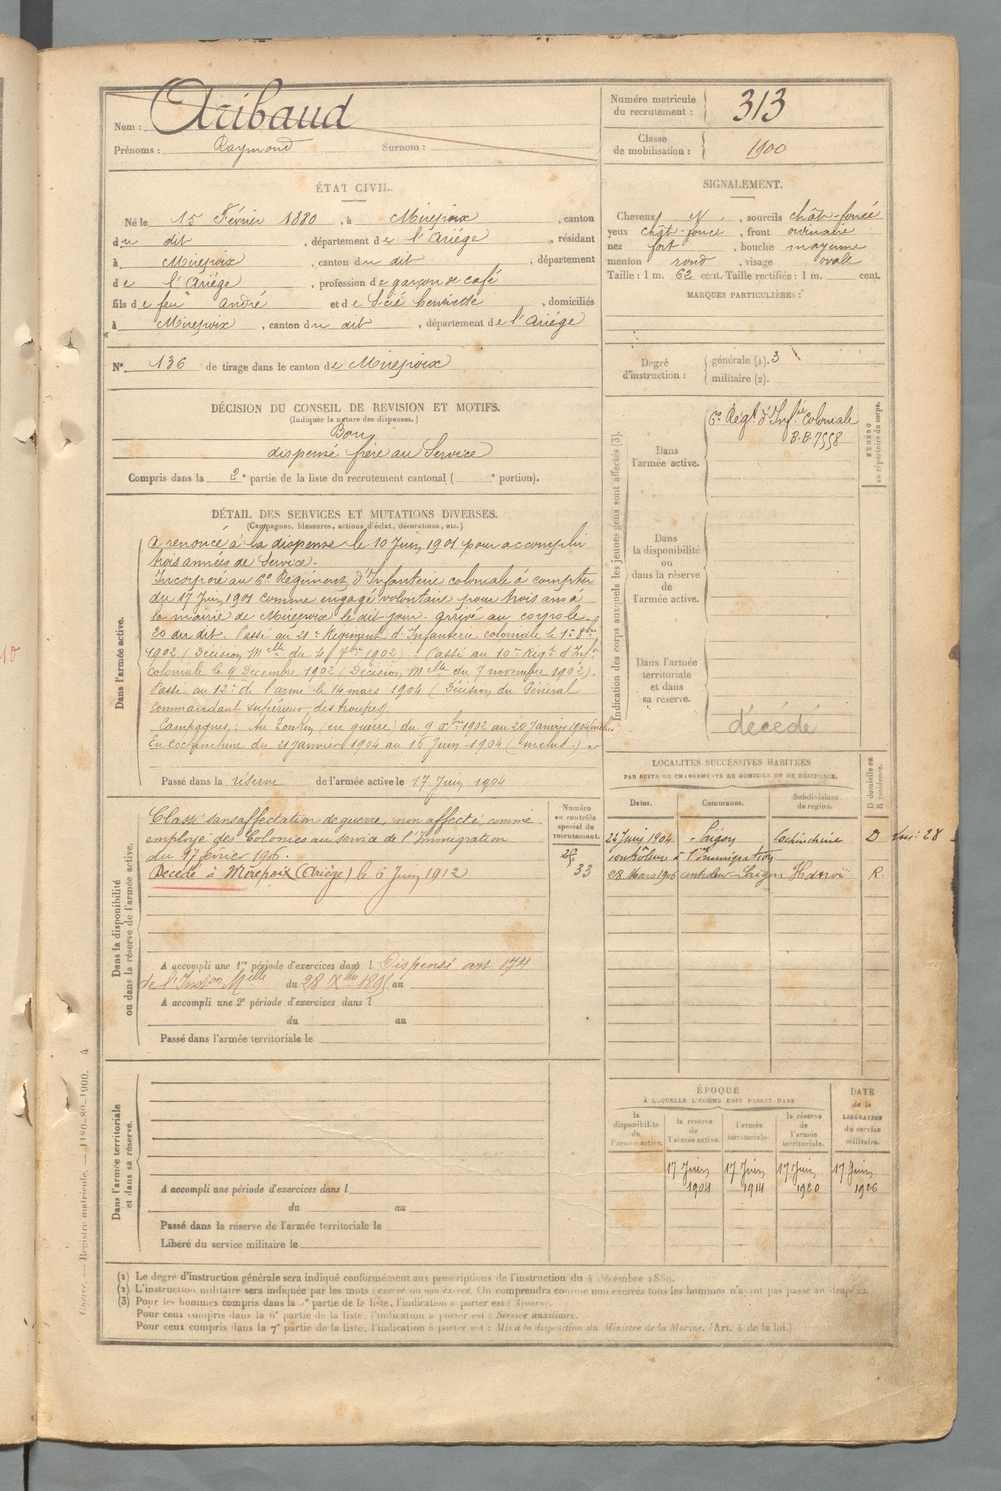 Nom : Aribaud
Prénoms : Raymond Surnom :
Numéro matricule du recrutement : 313
Classe de mobilisation : 1900
ÉTAT CIVIL.
Né le 15 Février 1880, à Mirepoix, canton
du dit, département de l'Ariége, résidant
à Mirepoix, canton du dit, département
de l'Ariége, profession de garçon de café
fils de feu André et de Sicié henriette, domiciliés
à Mirepoix, canton du dit, département de l'Ariége
N° 136 de tirage dans le canton de Mirepoix
SIGNALEMENT.
Cheveux , sourcils chât-foncé
yeux chât-foncé, front ordinaire
nez fort, bouche moyenne
menton rond, visage ovale
Taille : 1 m. 62 cent. Taille rectifiée : 1 m. cent.
MARQUES PARTICULIÈRES :
Degré d'instruction : générale (1). 3
militaire (2).
DÉCISION DU CONSEIL DE REVISION ET MOTIFS.
(Indiquer la nature des dispenses.)
Bon
dispensé frère au Service
Compris dans la 2e partie de la liste du recrutement cantonal ( e portion).
DÉTAIL DES SERVICES ET MUTATIONS DIVERSES.
(Campagnes, blessures, actions d'éclat, décorations, etc.)
Dans l'armée active.
A renoncé à la dispense le 10 Juin 1901 pour accomplir
trois années de Service.
Incorporé au 6e Régiment d'Infanterie coloniale à compter
du 17 Juin 1901 comme engagé volontaire pour trois ans à
la mairie de Mirepoix le dit jour. Arrivé au corps le
20 du dit. Passé au 21e Régiment d'Infanterie coloniale le 1er 8bre
1902 (Décision Mlle du 4 7bre 1902) Passé au 10e Regt d'Infie
Coloniale le 9 Décembre 1902 (Décision Mlle du 7 novembre 1902).
Passé au 12e de l'arme le 14 mars 1904 (Décision du Général
Commandant supérieur des troupes).
Campagnes : Au Tonkin (en guerre) du 9 Xbre 1902 au 20 Janvier 1904 inclus
En Cochinchine du 21 Janvier 1904 au 16 Juin 1904 (inclus)
Passé dans la réserve de l'armée active le 17 Juin 1904
Indication des corps auxquels les jeunes gens sont affectés (3).
Dans l'armée active.
6e Régt d'Infie Coloniale
3.B.7558
NUMÉRO au répertoire du corps.
Dans la disponibilité ou dans la réserve de l'armée active.
Dans l'armée territoriale et dans sa réserve.
décédé
Dans la disponibilité ou dans la réserve de l'armée active.
Classé sans affectation de guerre, non affecté, comme
employé des Colonies au service de l'Immigration
du 17 février 1906.
Décédé à Mirepoix (Ariège) le 6 Juin 1912
Numéro au contrôle spécial du recrutement.
33
A accompli une 1re période d'exercices dans l Dispensé art 174
de l'Inston Mlle du 28 Xbre 1895 au
A accompli une 2e période d'exercices dans l
du au
Passé dans l'armée territoriale le
LOCALITES SUCCESSIVES HABITÉES
PAR SUITE DE CHANGEMENTS DE DOMICILE OU DE RÉSIDENCE.
Dates. Communes. Subdivisions de région. D domicile ou R résidence.
25 Juin 1904 Saigon Cochinchine D
controleur à l'Immigration
28 Mars 1906 controleur Saigon Hanoï R.
Dans l'armée territoriale et dans sa réserve.
A accompli une période d'exercices dans l
du au
Passé dans la réserve de l'armée territoriale le
Libéré du service militaire le
ÉPOQUE
À LAQUELLE L'HOMME DOIT PASSER DANS
la disponibilité de l'armée active. la réserve de l'armée active. l'armée territoriale. la réserve de l'armée territoriale. DATE de la LIBÉRATION du service militaire.
17 Juin 1904 17 Juin 1914 17 Juin 1920 17 Juin 1926
(1) Le degré d'instruction générale sera indiqué conformément aux prescriptions de l'instruction du 4 décembre 1889.
(2) L'instruction militaire sera indiquée par les mots : exercé ou non exercé. On comprendra comme non exercés tous les hommes n'ayant pas passé au drapeau.
(3) Pour les hommes compris dans la 4e partie de la liste, l'indication à porter est : Ajourné.
Pour ceux compris dans la 6e partie de la liste, l'indication à porter est : Service auxiliaire.
Pour ceux compris dans la 7e partie de la liste, l'indication à porter est : Mis à la disposition du Ministre de la Marine. (Art. 4 de la loi.)
Registre matricule. — 1180-80-1900. 4